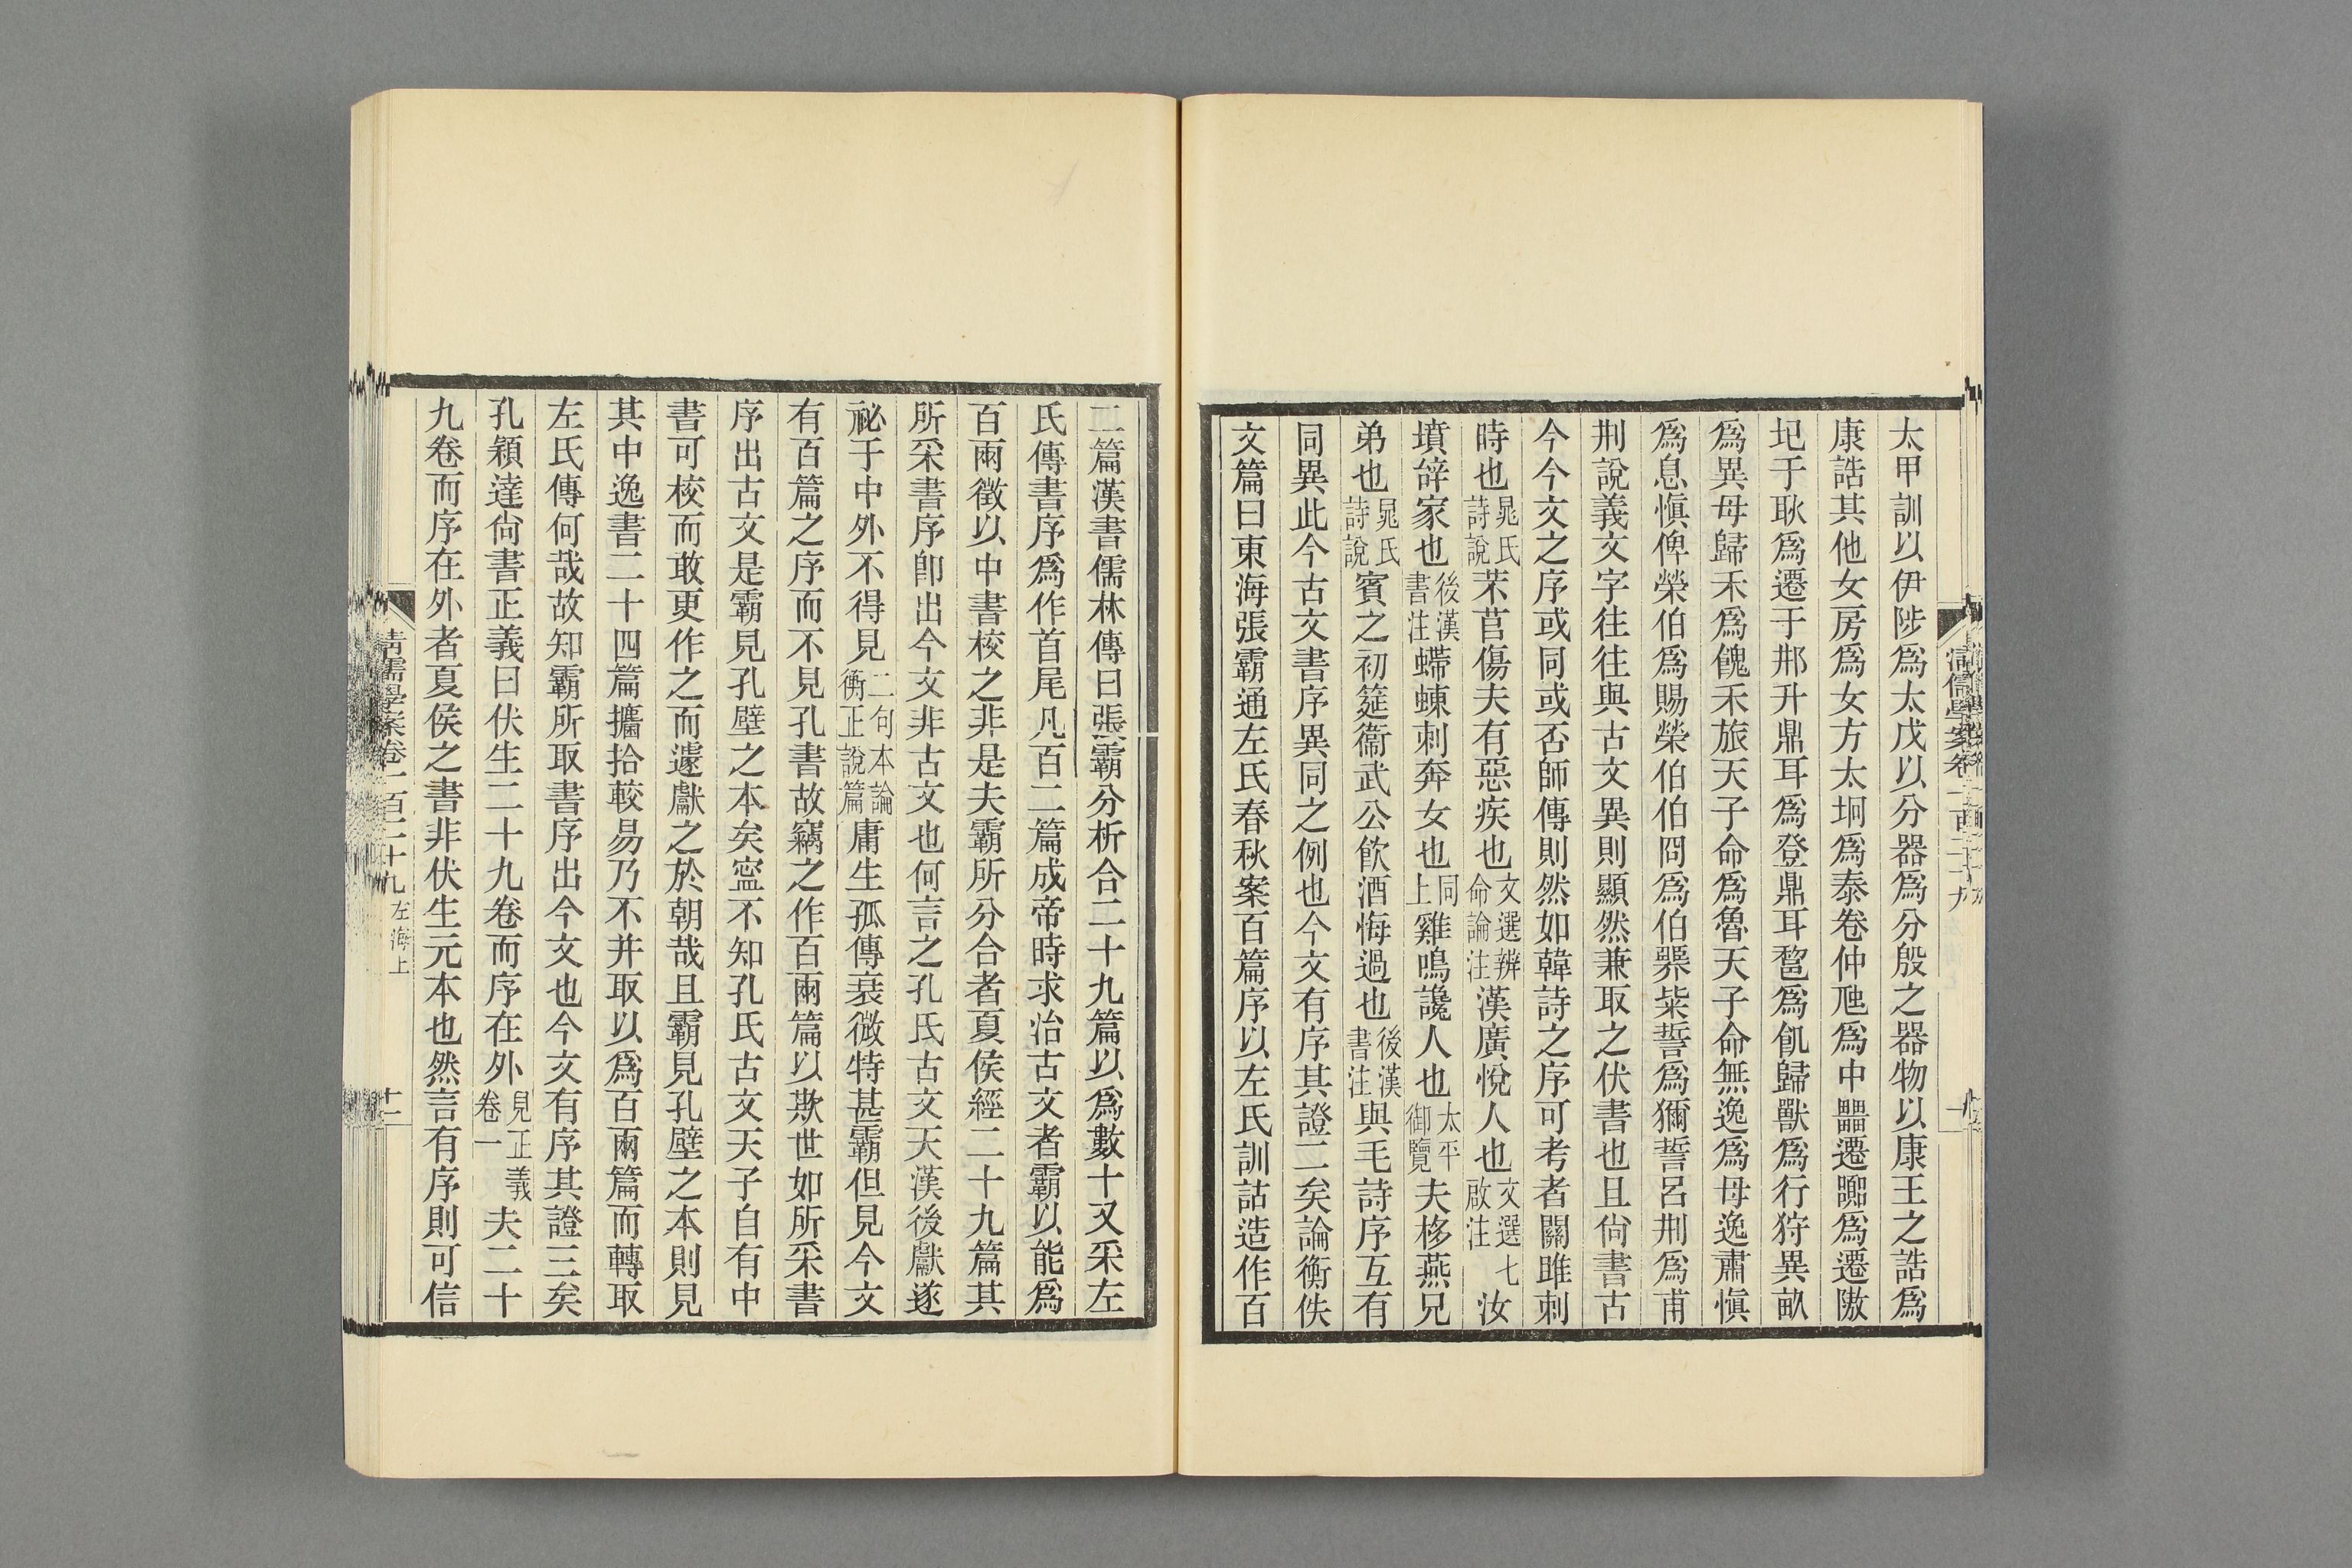 太甲訓以伊陟爲太戊以分器爲分殷之器物以康王之誥爲
康誥其他女房爲女方太坰爲泰卷仲虺爲中𤴐遷嚻爲遷隞
圮于耿爲遷于邢升鼎耳爲登鼎耳𥠖爲飢歸獸爲行狩異畝
爲異母歸禾爲餽禾旅天子命爲魯天子命無逸爲毋逸肅愼
爲息愼俾榮伯爲賜榮伯伯冏爲伯臩柴誓爲獮誓呂刑爲甫
刑說義文字往往與古文異則顯然兼取之伏書也且尙書古
今今文之序或同或否師傳則然如韓詩之序可考者關雎刺
時也晁氏詩說芣苢傷夫有惡疾也文選辨命論注漢廣悅人也文選七啟注汝
墳辤家也後漢書注蝃蝀刺奔女也同上雞鳴讒人也太平御覽夫栘燕兄
弟也晁氏詩說賓之初筵衞武公飮酒悔過也後漢書注與毛詩序互有
同異此今古文書序異同之例也今文有序其證二矣論衡佚
文篇曰東海張霸通左氏春秋案百篇序以左氏訓詁造作百
二篇漢書儒林傳曰張霸分析合二十九篇以爲數十又采左
氏傳書序爲作首尾凡百二篇成帝時求治古文者霸以能爲
百兩徵以中書校之非是夫霸所分合者夏侯經二十九篇其
所采書序卽出今文非古文也何言之孔氏古文天漢後獻遂
祕于中外不得見二句本論衡正說篇庸生孤傳衰微特甚霸但見今文
有百篇之序而不見孔書故竊之作百兩篇以欺世如所采書
序出古文是霸見孔壁之本矣寍不知孔氏古文天子自有中
書可校而敢更作之而遽獻之於朝哉且霸見孔壁之本則見
其中逸書二十四篇攟拾較易乃不并取以爲百兩篇而轉取
左氏傳何哉故知霸所取書序出今文也今文有序其證三矣
孔穎達尙書正義曰伏生二十九卷而序在外見正義卷一夫二十
九卷而序在外者夏侯之書非伏生元本也然言有序則可信
清儒學案卷一百二十九 左海上
十二